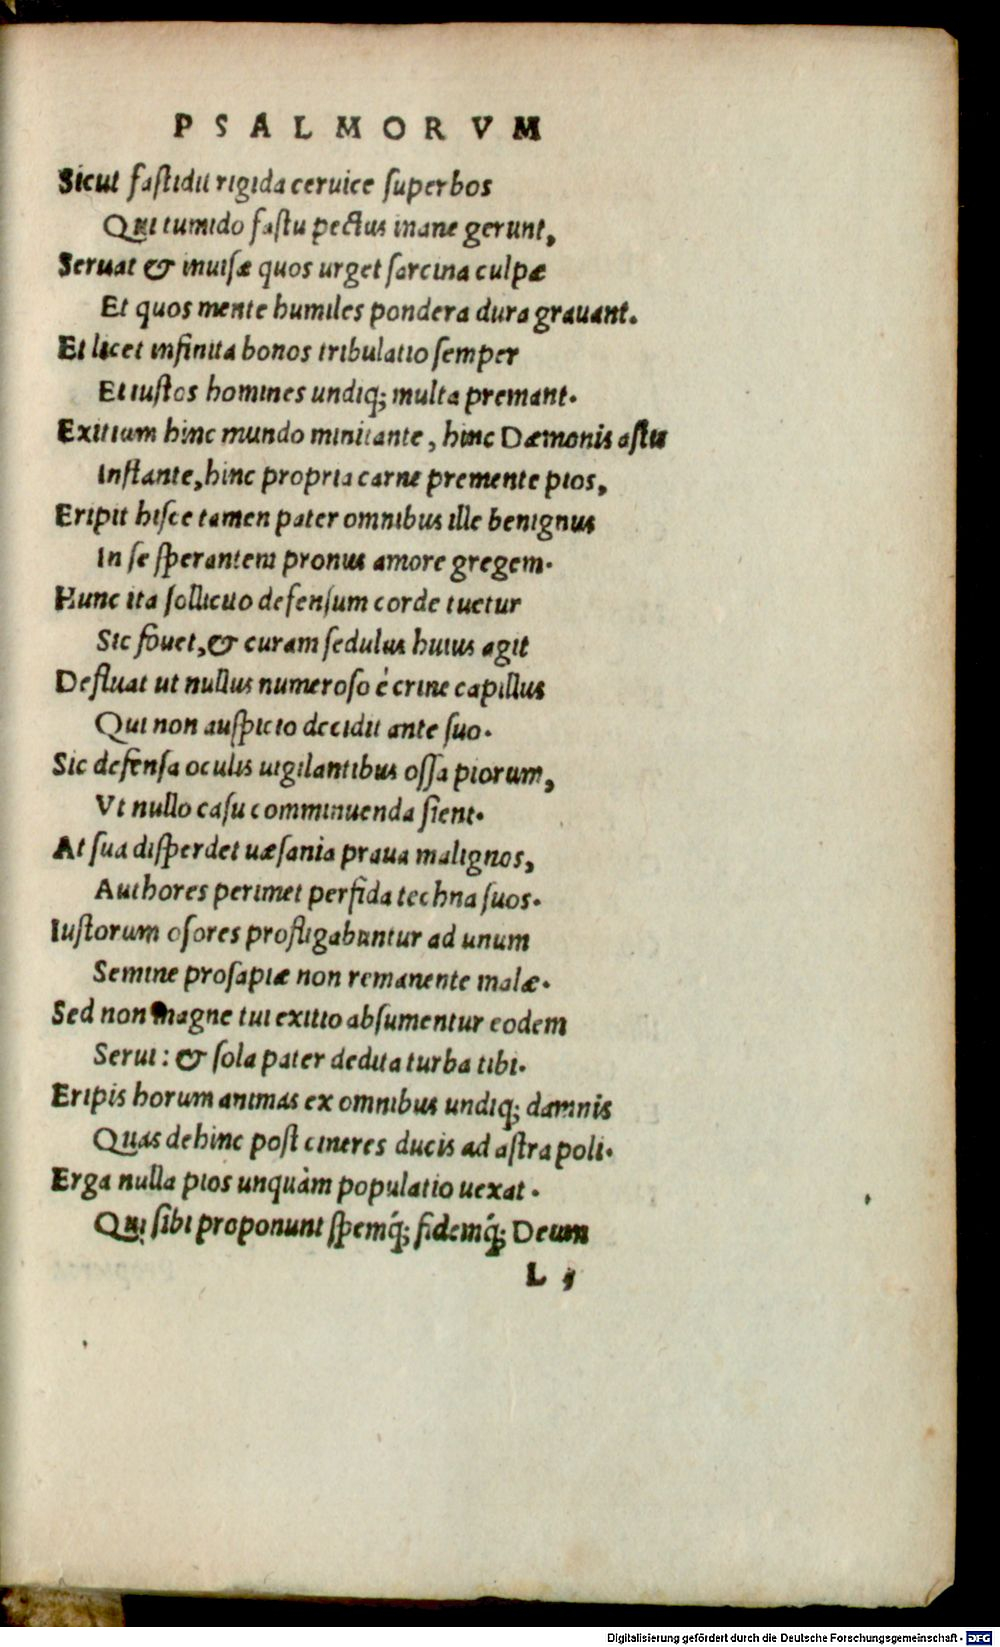 PSALMORVM
Sicut fastidit rigida ceruice superbos
Qui tumido fastu pectus inane gerunt,
Seruat & inuisæ quos urget sarcina culpæ
Et quos mente humiles pondera dura grauant.
Et licet infinita bonos tribulatio semper
Et iustos homines undiq; multa premant.
Exitium hinc mundo minitante, hinc Dæmonis astu
Instante, hinc propria carne premente pios,
Eripit hisce tamen pater omnibus ille benignus
In se sperantem pronus amore gregem.
Hunc ita sollicito defensum corde tuetur
Sic fouet, & curam sedulus huius agit
Defluat ut nullus numeroso è crine capillus
Qui non auspicio decidit ante suo.
Sic defensa oculis uigilantibus ossa piorum,
Vt nullo casu comminuenda sient.
At sua disperdet uæsania praua malignos,
Authores perimet perfida techna suos.
Iustorum osores profligabuntur ad unum
Semine prosapiæ non remanente malæ.
Sed non magne tui exitio absumentur eodem
Serui: & sola pater dedita turba tibi.
Eripis horum animas ex omnibus undiq; damnis
Quas dehinc post cineres ducis ad astra poli.
Erga nulla pios unquàm populatio uexat.
Qui sibi proponunt spemq́; fidemq́; Deum
L
Digitalisierung gefördert durch die Deutsche Forschungsgemeinschaft - DFG